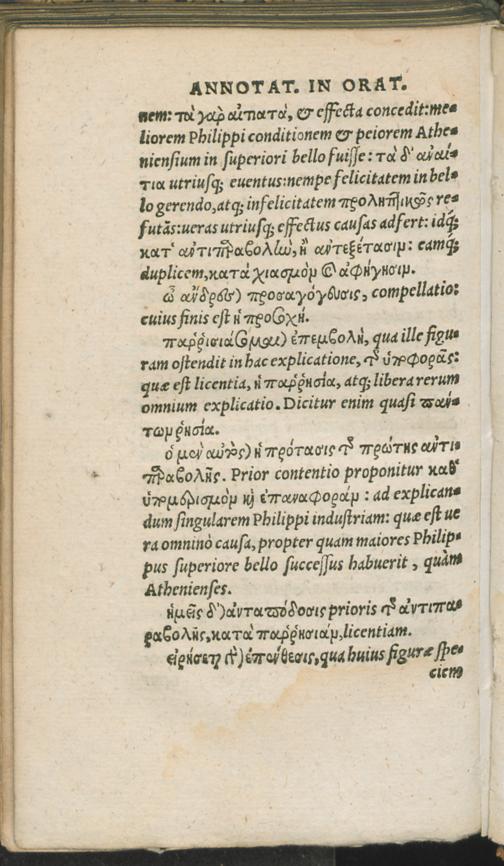 ANNOTAT. IN ORAT.
nem: τὰ γὰρ αἰτιατὰ, & effecta concedit: me-
liorem Philippi conditionem & peiorem Athe-
niensium in superiori bello fuisse: τὰ δ' αναί-
τια utriusq; euentus: nempe felicitatem in bel-
lo gerendo, atq; infelicitatem προληπτικῶς re-
futãs: ueras utriusq; effectus causas adfert: idq́;
κατ' αντιπαραβολὼ, ἢ αντεξέτασιμ: eamq́;
duplicem, κατὰ χιασμὸμ & αφήγησιμ.
ὦ ἄνδρες) προσαγόγευσις, compellatio:
cuius finis est ἡ προσοχή.
παῤῥισιάσομαι) ἐπεμβολὴ, qua ille figu-
ram ostendit in hac explicatione, τ υποφορᾶς:
quæ est licentia, ἡ παῤῥησία, atq; libera rerum
omnium explicatio. Dicitur enim quasi παν-
τωμ ῥησία.
ὁ μὲν αὐτὸς) ἡ πρότασις τ πρώτης αντι-
παραβολῆς. Prior contentio proponitur καθ'
ὑπομερισμὸμ κὴ ἐπαναφοράμ: ad explican-
dum singularem Philippi industriam: quæ est ue
ra omninò causa, propter quam maiores Philip-
pus superiore bello successus habuerit, quàm
Athenienses.
ἡμεῖς δ') ἀνταπόδοσις prioris τ αντιπα-
ραβολῆς, κατὰ παῤῥησιάμ, licentiam.
εἰρήσεται) ἐπένθεσις, qua huius figuræ spe-
ciem